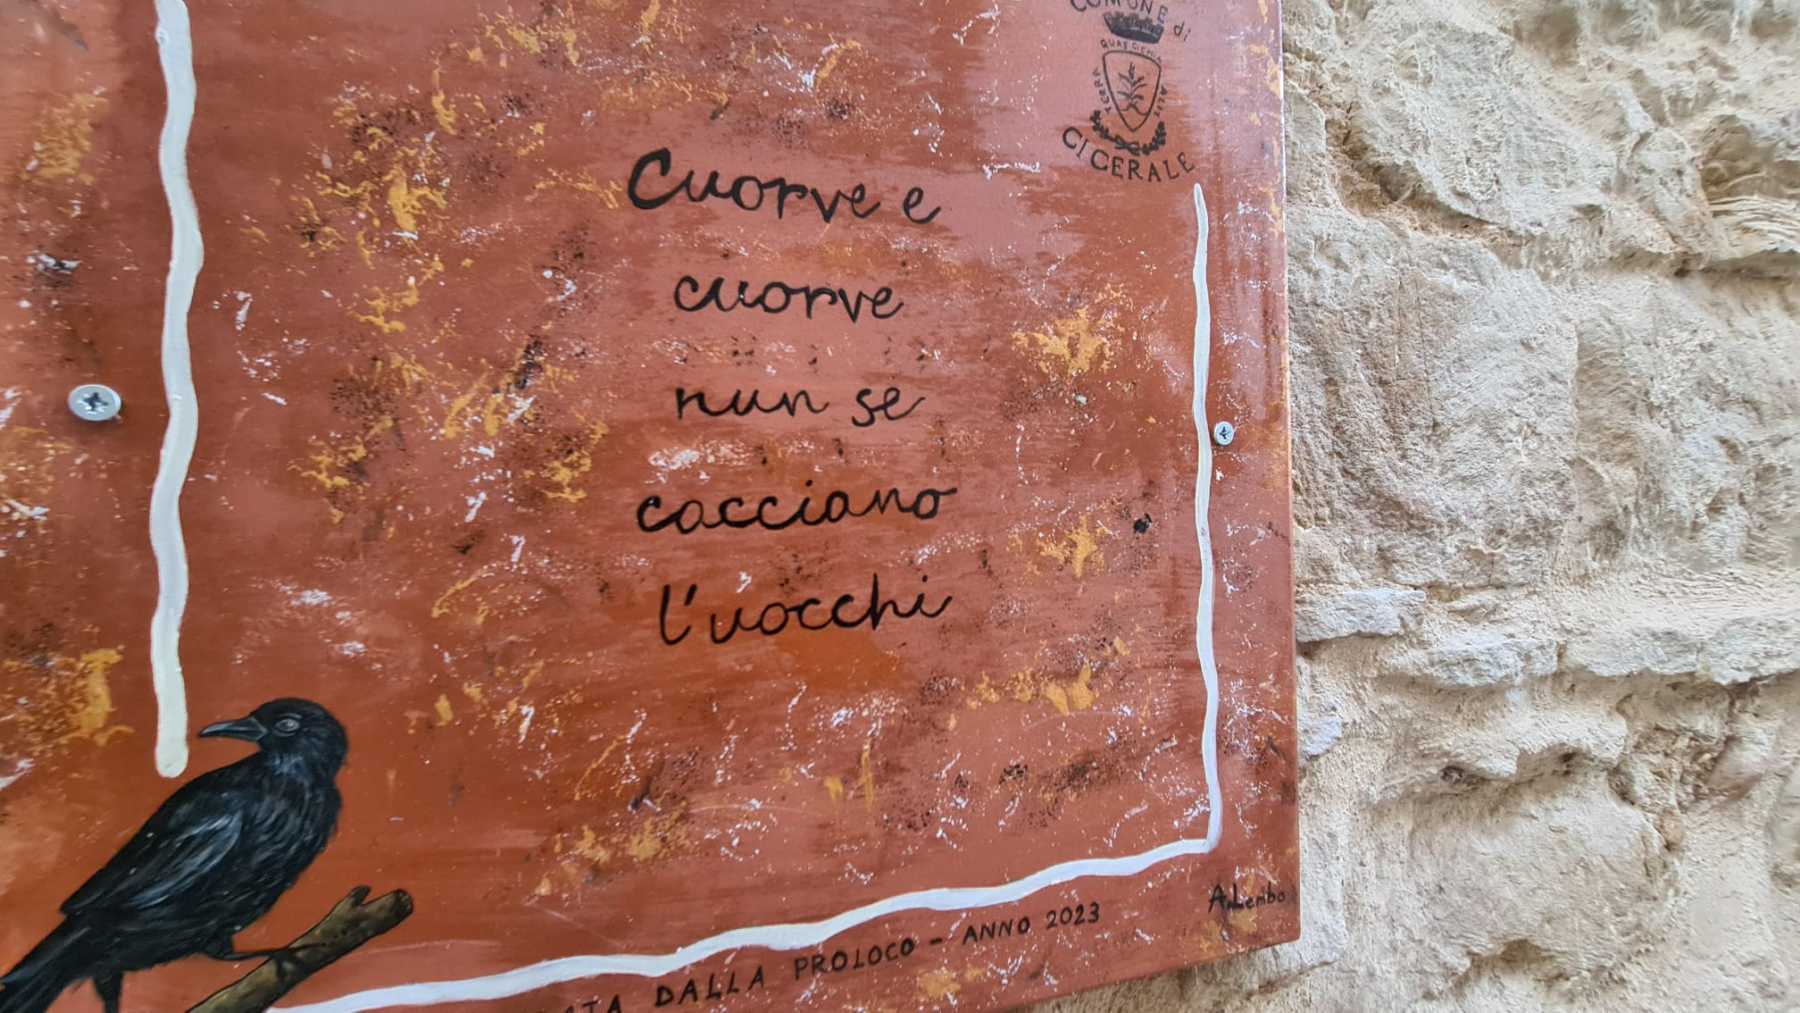 COMUNE di
CICERALE
Cuorve e
cuorve
nun se
cacciano
l'uocchi
DALLA PROLOCO - ANNO 2023